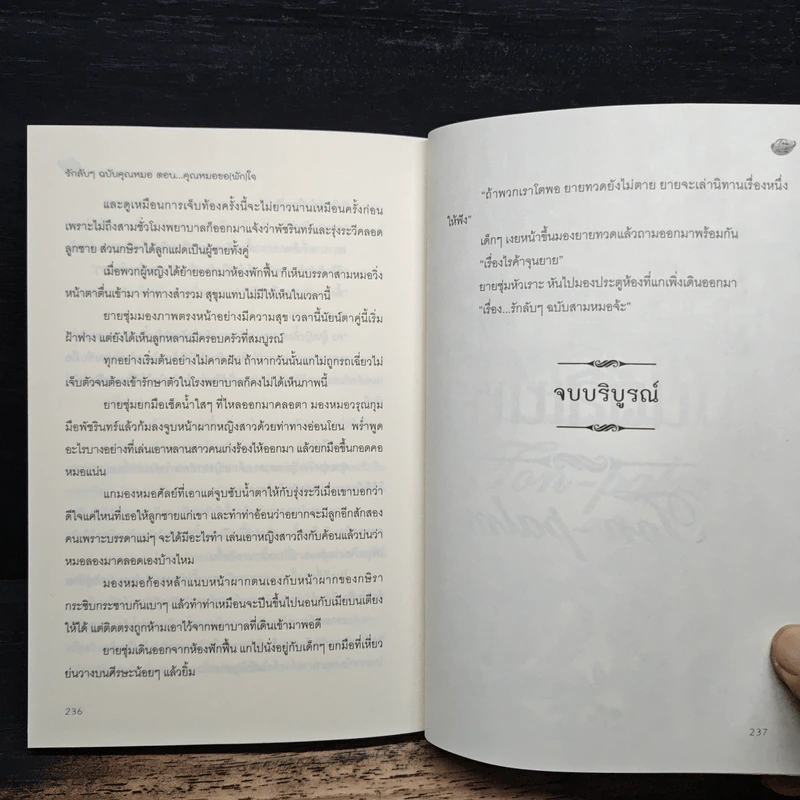 รักลับๆ ฉบับคุณหมอ ตอน...คุณหมอขอ(พัก)ใจ
และดูเหมือนการเจ็บท้องครั้งนี้จะไม่ยาวนานเหมือนครั้งก่อน
เพราะไม่ถึงสามชั่วโมงพยาบาลก็ออกมาแจ้งว่าพัชรินทร์และรุ่งระวีคลอด
ลูกชาย ส่วนกษิราได้ลูกแฝดเป็นผู้ชายทั้งคู่
เมื่อพวกผู้หญิงได้ย้ายออกมาห้องพักฟื้น ก็เห็นบรรดาสามหมอวิ่ง
หน้าตาตื่นเข้ามา ท่าทางสำรวม สุขุมแทบไม่มีให้เห็นในเวลานี้
ยายชุ่มมองภาพตรงหน้าอย่างมีความสุข เวลานี้นัยน์ตาคู่นี้เริ่ม
ฝ้าฟาง แต่ยังได้เห็นลูกหลานมีครอบครัวที่สมบูรณ์
ทุกอย่างเริ่มต้นอย่างไม่คาดฝัน ถ้าหากวันนั้นแกไม่ถูกรถเฉี่ยวไม่
เจ็บตัวจนต้องเข้ารักษาตัวในโรงพยาบาลก็คงไม่ได้เห็นภาพนี้
ยายชุ่มยกมือเช็ดน้ำใสๆ ที่ไหลออกมาคลอตา มองหมอวรุณกุม
มือพัชรินทร์แล้วก้มลงจูบหน้าผากหญิงสาวด้วยท่าทางอ่อนโยน พร่ำพูด
อะไรบางอย่างที่เล่นเอาหลานสาวคนเก่งร้องไห้ออกมา แล้วยกมือขึ้นกอดคอ
หมอแน่น
แกมองหมอศัลย์ที่เอาแต่จูบซับน้ำตาให้กับรุ่งระวีเมื่อเขาบอกว่า
ดีใจแค่ไหนที่เธอให้ลูกชายแก่เขา และทำท่าอ้อนว่าอยากจะมีลูกอีกสักสอง
คนเพราะบรรดาแม่ๆ จะได้มีอะไรทำ เล่นเอาหญิงสาวถึงกับค้อนแล้วบ่นว่า
หมอลองมาคลอดเองบ้างไหม
มองหมอก้องหล้าแนบหน้าผากตนเองกับหน้าผากของกษิรา
กระซิบกระซาบกันเบาๆ แล้วทำท่าเหมือนจะปีนขึ้นไปนอนกับเมียบนเตียง
ให้ได้ แต่ติดตรงถูกห้ามเอาไว้จากพยาบาลที่เดินเข้ามาพอดี
ยายชุ่มเดินออกจากห้องพักฟื้น แกไปนั่งอยู่กับเด็กๆ ยกมือที่เหี่ยว
ย่นวางบนศีรษะน้อยๆ แล้วยิ้ม
236
“ถ้าพวกเราโตพอ ยายทวดยังไม่ตาย ยายจะเล่านิทานเรื่องหนึ่ง
ให้ฟัง”
เด็กๆ เงยหน้าขึ้นมองยายทวดแล้วถามออกมาพร้อมกัน
“เรื่องไรค้าจุนยาย”
ยายชุ่มหัวเราะ หันไปมองประตูห้องที่แกเพิ่งเดินออกมา
“เรื่อง...รักลับๆ ฉบับสามหมอจ้ะ”
จบบริบูรณ์
237